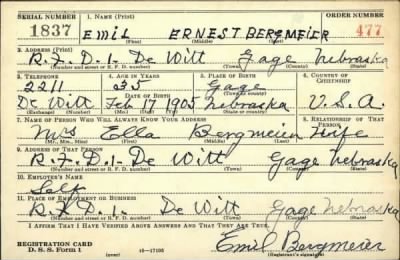 SERIAL NUMBER 1. NAME (Print) ORDER NUMBER
1837 EMIL ERNEST BERGMEIER 477
(First) (Middle) (Last)
3. ADDRESS (Print)
R.F.D. 1- De Witt Gage Nebraska
(Number and street or R. F. D. number) (Town) (County) (State)
3. TELEPHONE 4. AGE IN YEARS 5. PLACE OF BIRTH 6. COUNTRY OF CITIZENSHIP
2211 35 Gage
DATE OF BIRTH (Town or county)
De Witt Feb 17 1905 Nebraska U.S.A.
(Exchange) (Number) (Mo.) (Day) (Yr.) (State or country)
7. NAME OF PERSON WHO WILL ALWAYS KNOW YOUR ADDRESS 8. RELATIONSHIP OF THAT PERSON
Mrs Ella Bergmeier Wife
(Mr., Mrs., Miss) (First) (Middle) (Last)
9. ADDRESS OF THAT PERSON
R.F.D. 1- De Witt Gage Nebraska
(Number and street or R. F. D. number) (Town) (County) (State)
10. EMPLOYER'S NAME
Self
11. PLACE OF EMPLOYMENT OR BUSINESS
R.F.D. 1. De Witt Gage Nebraska
(Number and street or R. F. D. number) (Town) (County) (State)
I AFFIRM THAT I HAVE VERIFIED ABOVE ANSWERS AND THAT THEY ARE TRUE.
REGISTRATION CARD
D. S. S. Form 1 (over) 16-17105 Emil Bergmeier
(Registrant's signature)